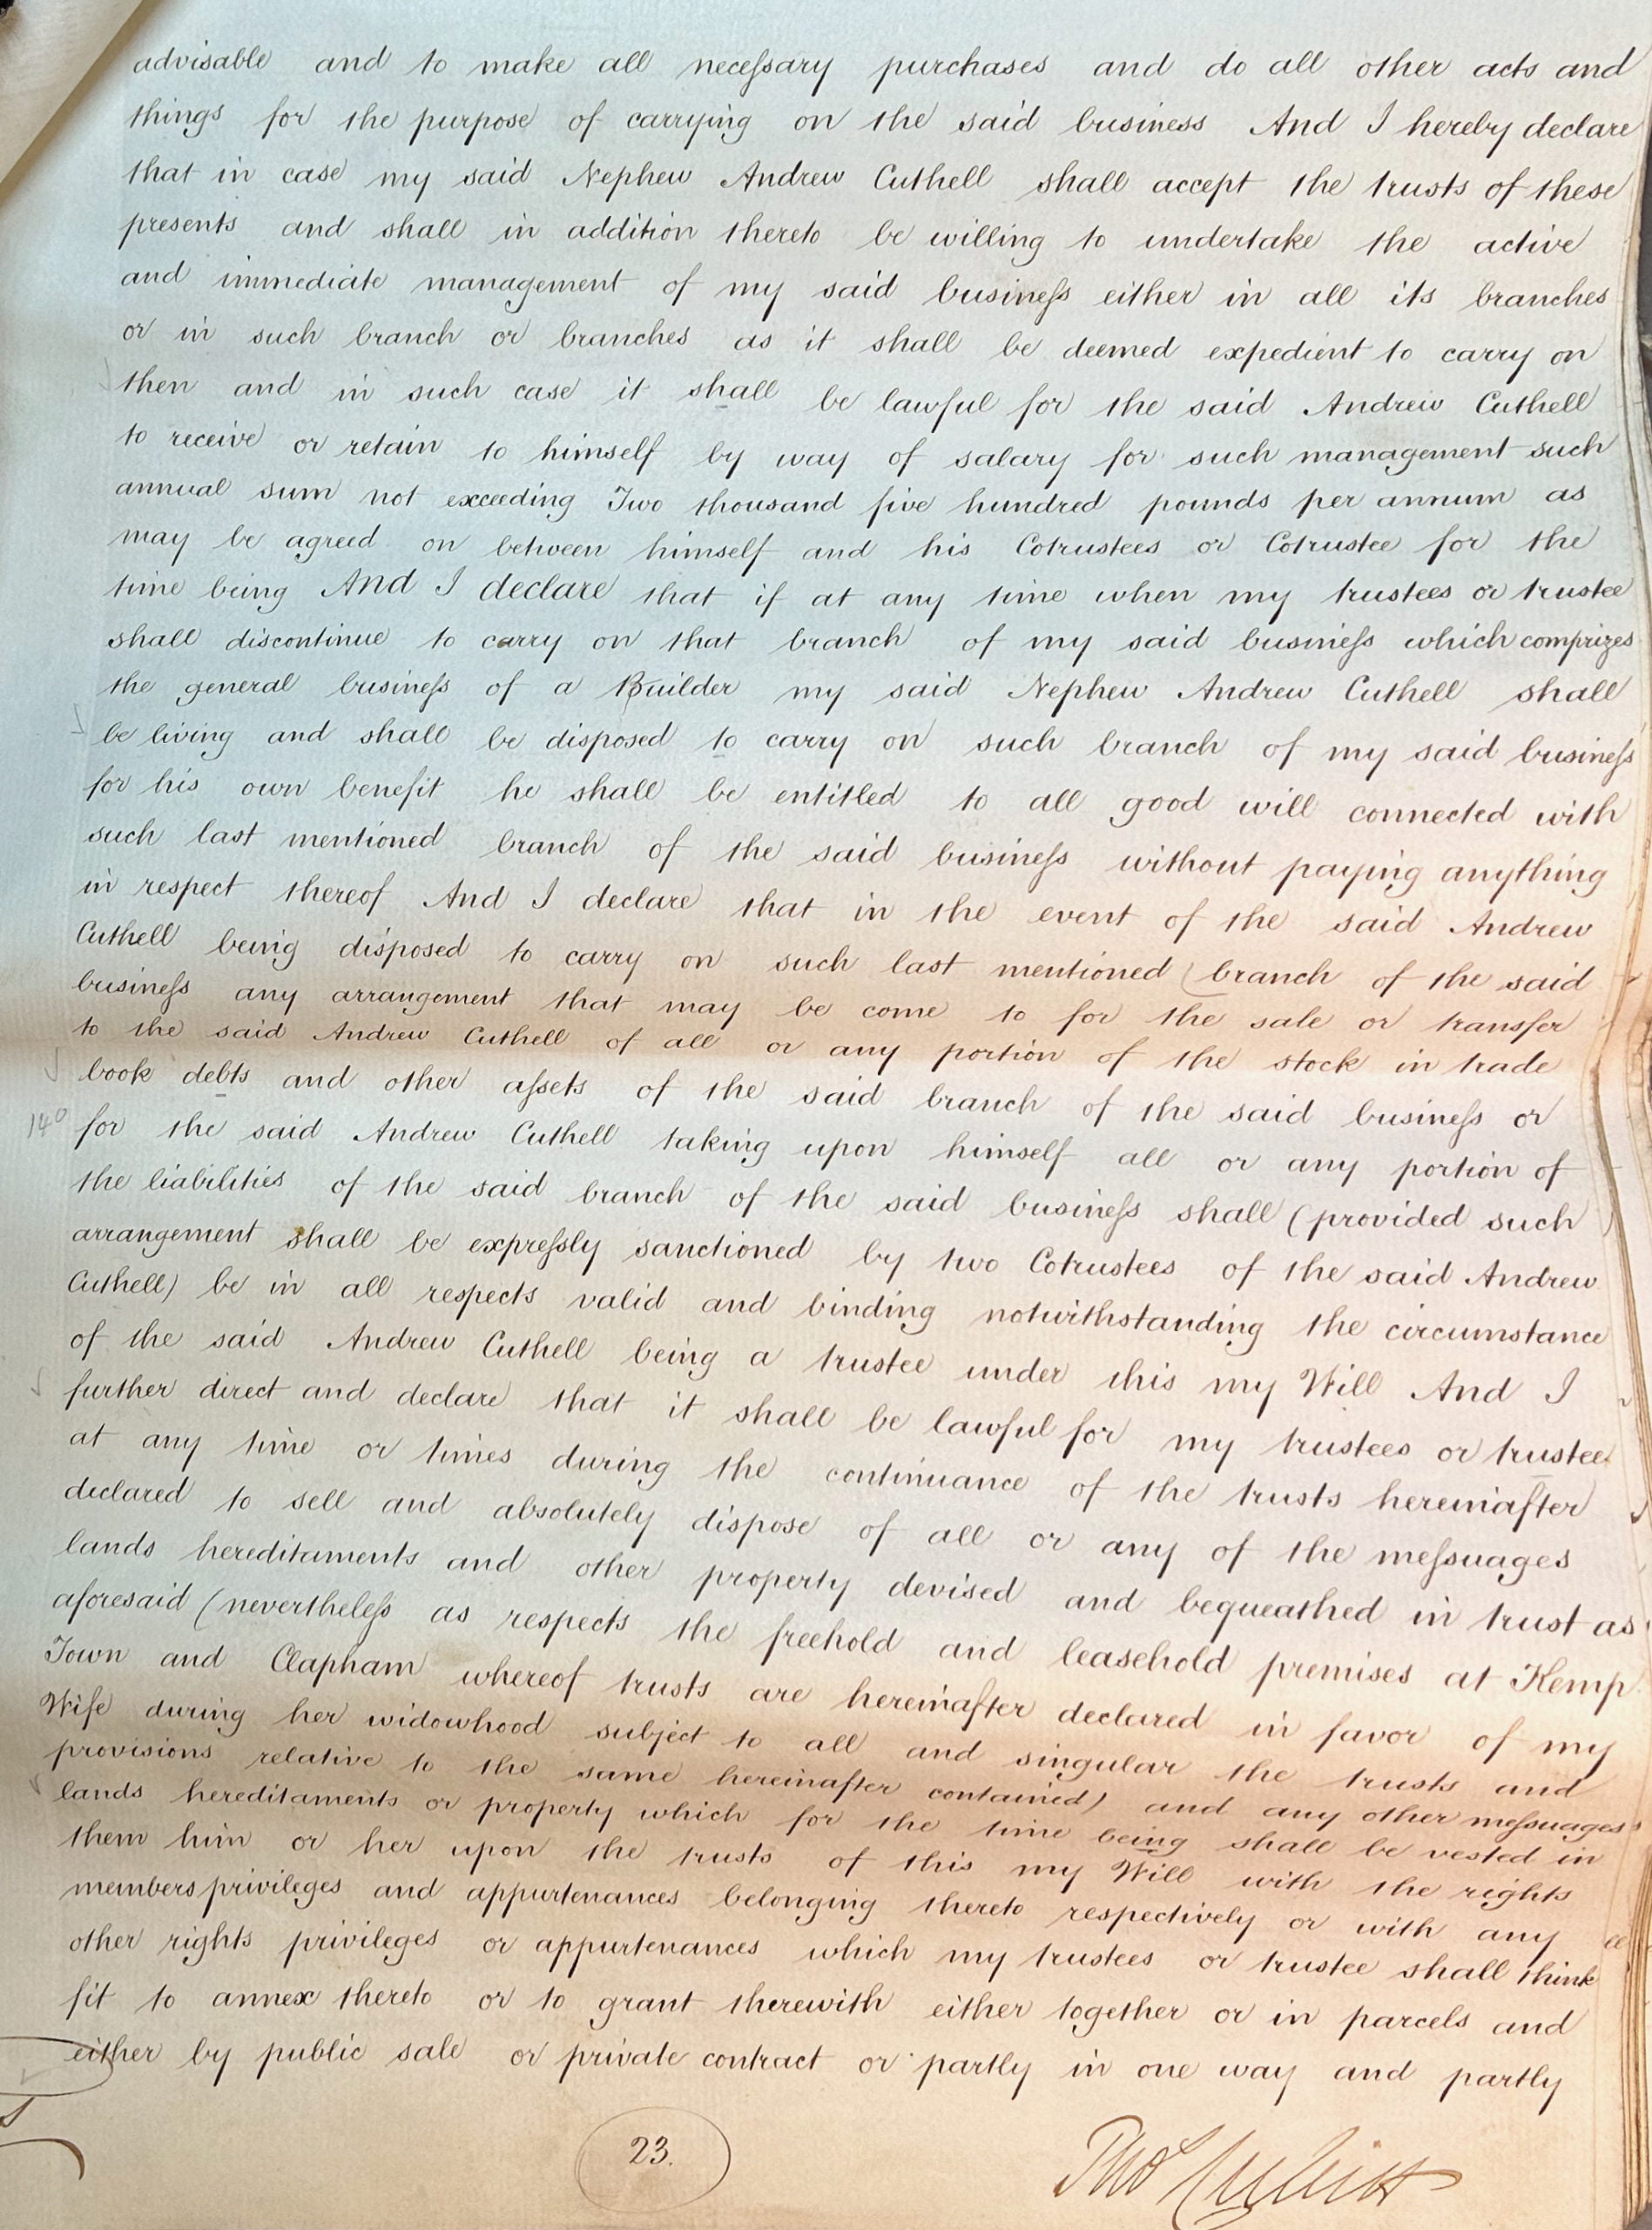 advisable and to make all neceſsary purchases and do all other acts and
things for the purpose of carrying on the said business And I hereby declare
that in case my said Nephew Andrew Cuthell shall accept the trusts of these
presents and shall in addition thereto be willing to undertake the active
and immediate management of my said buſineſs either in all its branches
or in such branch or branches as it shall be deemed expedient to carry on
then and in such case it shall be lawful for the said Andrew Cuthell
to receive or retain to himself by way of salary for such management such
annual sum not exceeding Two thousand five hundred pounds per annum as
may be agreed on between himself and his Cotrustees or Cotrustee for the
time being And I declare that if at any time when my trustees or trustee
shall discontinue to carry on that branch of my said busineſs which comprizes
the general busineſs of a Builder my said Nephew Andrew Cuthell shall
be living and shall be disposed to carry on such branch of my said busineſs
for his own benefit he shall be entitled to all good will connected with
such last mentioned branch of the said busineſs without paying anything
in respect thereof And I declare that in the event of the said Andrew
Cuthell being disposed to carry on such last mentioned branch of the said
busineſs any arrangement that may be come to for the sale or transfer
to the said Andrew Cuthell of all or any portion of the stock in trade
book debts and other aſsets of the said branch of the said busineſs or
140 for the said Andrew Cuthell taking upon himself all or any portion of
the liabilities of the said branch of the said busineſs shall (provided such
arrangement shall be expreſsly sanctioned by two Cotrustees of the said Andrew
Cuthell) be in all respects valid and binding notwithstanding the circumstance
of the said Andrew Cuthell being a trustee under this my Will And I
further direct and declare that it shall be lawful for my trustees or trustee
at any time or times during the continuance of the trusts hereinafter
declared to sell and absolutely dispose of all or any of the meſsuages
lands hereditaments and other property devised and bequeathed in trust as
aforesaid (nevertheleſs as respects the freehold and leasehold premises at Kemp
Town and Clapham whereof trusts are hereinafter declared in favor of my
Wife during her widowhood subject to all and singular the trusts and
provisions relative to the same hereinafter contained) and any other meſsuages
lands hereditaments or property which for the time being shall be vested in
them him or her upon the trusts of this my Will with the rights
members privileges and appurtenances belonging thereto respectively or with any
other rights privileges or appurtenances which my trustees or trustee shall think
fit to annex thereto or to grant therewith either together or in parcels and
either by public sale or private contract or partly in one way and partly
23.
Thos Cubitt